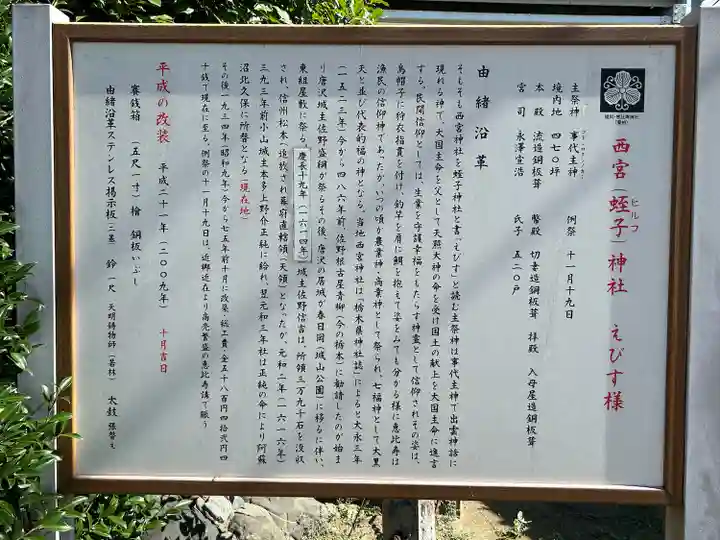 西宮(蛭子)神社 えびす様
ヒルフ
主祭神 事代主神 例祭 十一月十九日
境内地 四七〇坪
本殿 流造銅板葺 幣殿 切妻造銅板葺 拝殿 入母屋造銅板葺
宮司 永澤宣浩 氏子 五二〇戸
由緒沿革
そもそも西宮神社を蛭子神社と書「えびす」と読む主祭神は事代主神で出雲神話に
現れる神で、大国主命を父として天照大神の命を受け国土の献上を大国主命に進言
する。民間信仰としては、生業を守護幸福をもたらす神霊として信仰されその姿は、
烏帽子に狩衣指貫を付け、釣竿を肩に鯛を抱えて姿をみても分かる様に恵比寿は
漁民の信仰神であったが、いつの頃か農業神・商業神として祭られ、七福神として大黒
天と並び代表的福の神となる。当地西宮神社は「栃木県神社誌」によると大永三年
(一五二三年)今から四八六年前、佐野根古屋青柳(今の栃本)に勧請したのが始ま
り唐沢城主佐野盛綱が祭るその後、唐沢の居城が春日岡(城山公園)に移るに伴い、
東組屋敷に祭る。慶長十九年(一六一四年)城主佐野信吉は、所領三万九千石を没収
され、信州松本に追放され幕府直轄領(天領)となったが、元和二年(一六一六年)
三九三年前小山城主本多上野介正純に給れ翌元和三年社は正純の命により阿蘇
沼北久保に所替となる(現在地)
その後一九三四年(昭和九年)今から七五年前十月に改築・総工費・金五千八百円四拾弐円四
十銭で現在に至る。例祭の十一月十九日は、近郷近在より商売繁盛の恵比寿講で賑う
平成の改装 平成二十一年(二〇〇九年) 十月吉日
賽銭箱 (五尺一寸) 檜 銅板いぶし
由緒沿革ステンレス掲示板(三基) 鈴一尺 天明鋳物師(若林) 太鼓 張替え